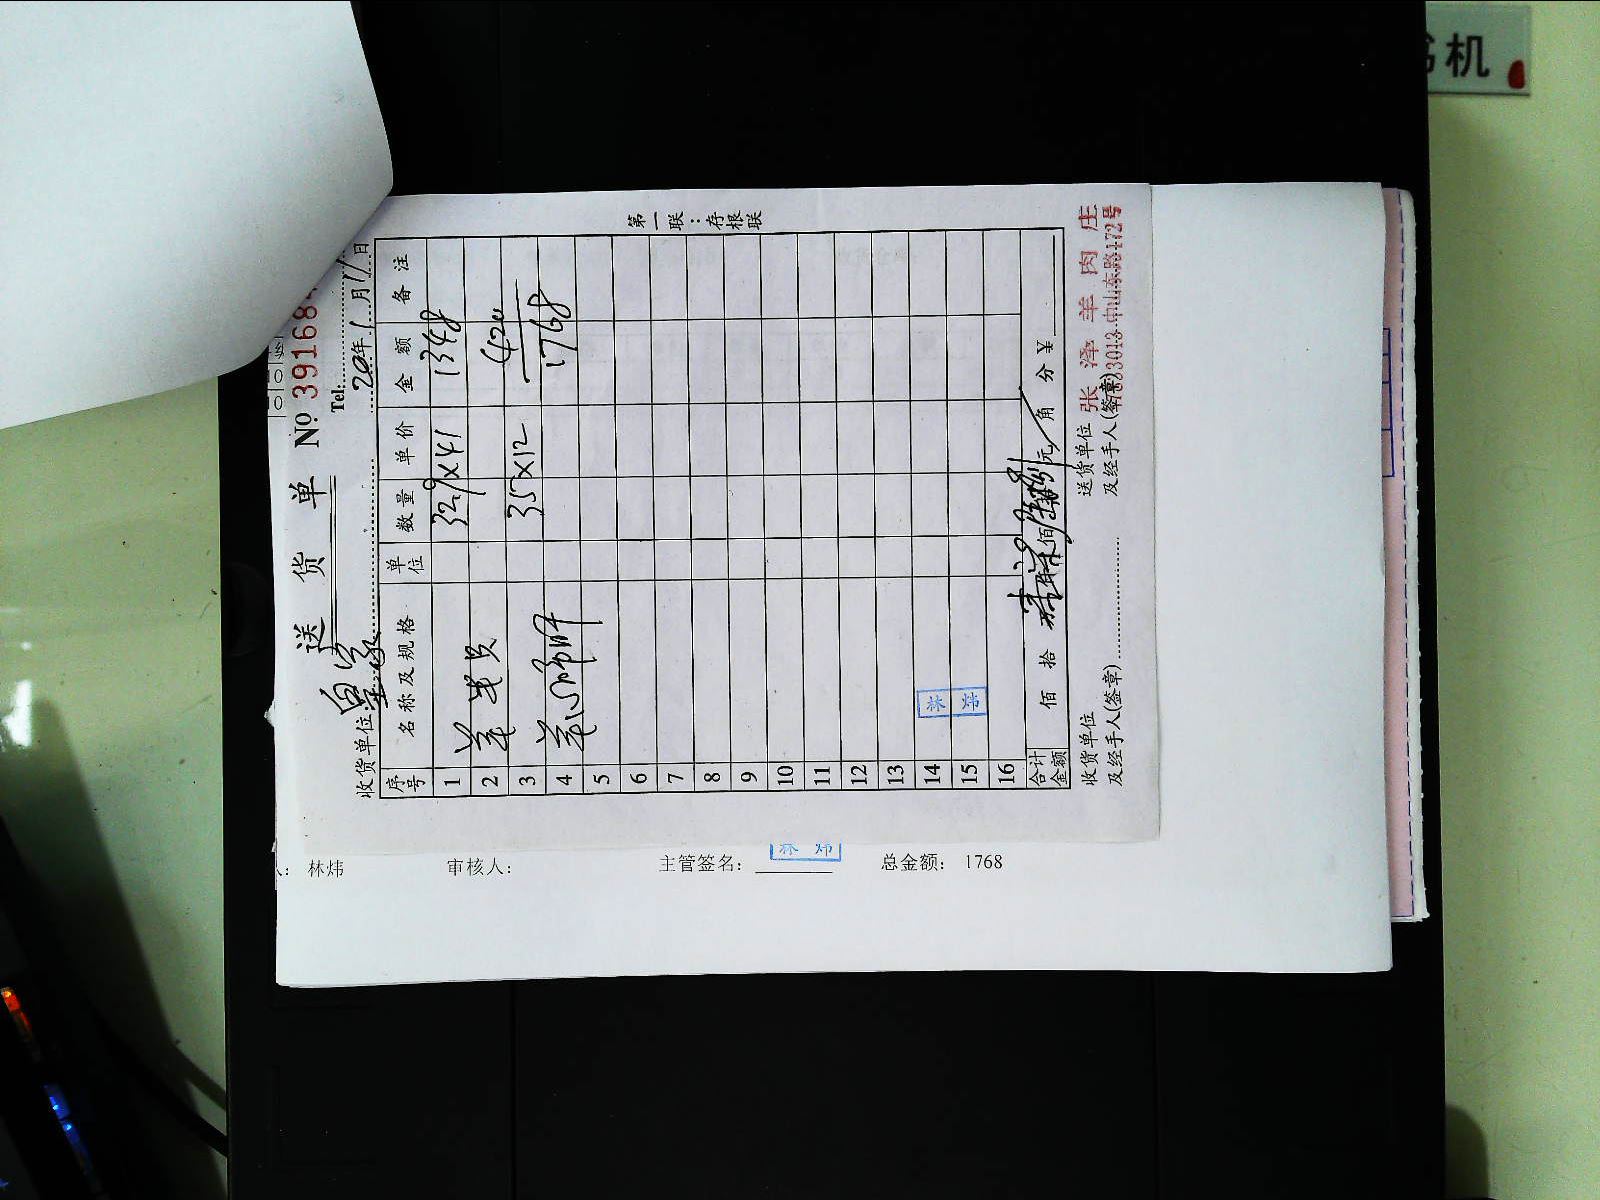 书机
第一联：存根联
送货单
№ 391684
Tel:
收货单位 皇家 20 年 1 月 11 日
序号 名称及规格 单位 数量 单价 金额 备注
1 32.9×41 1348
2
3 35×12 420
4 1768
5
6
7
8
9
10
11
12
13
14
15
16
林炜
合计金额 佰 拾 佰 元 角 分 ¥
收货单位及经手人(签章)
送货单位及经手人(签章)
张泽羊肉庄
33013 中山东路172号
林炜 审核人： 主管签名： 林炜 总金额： 1768